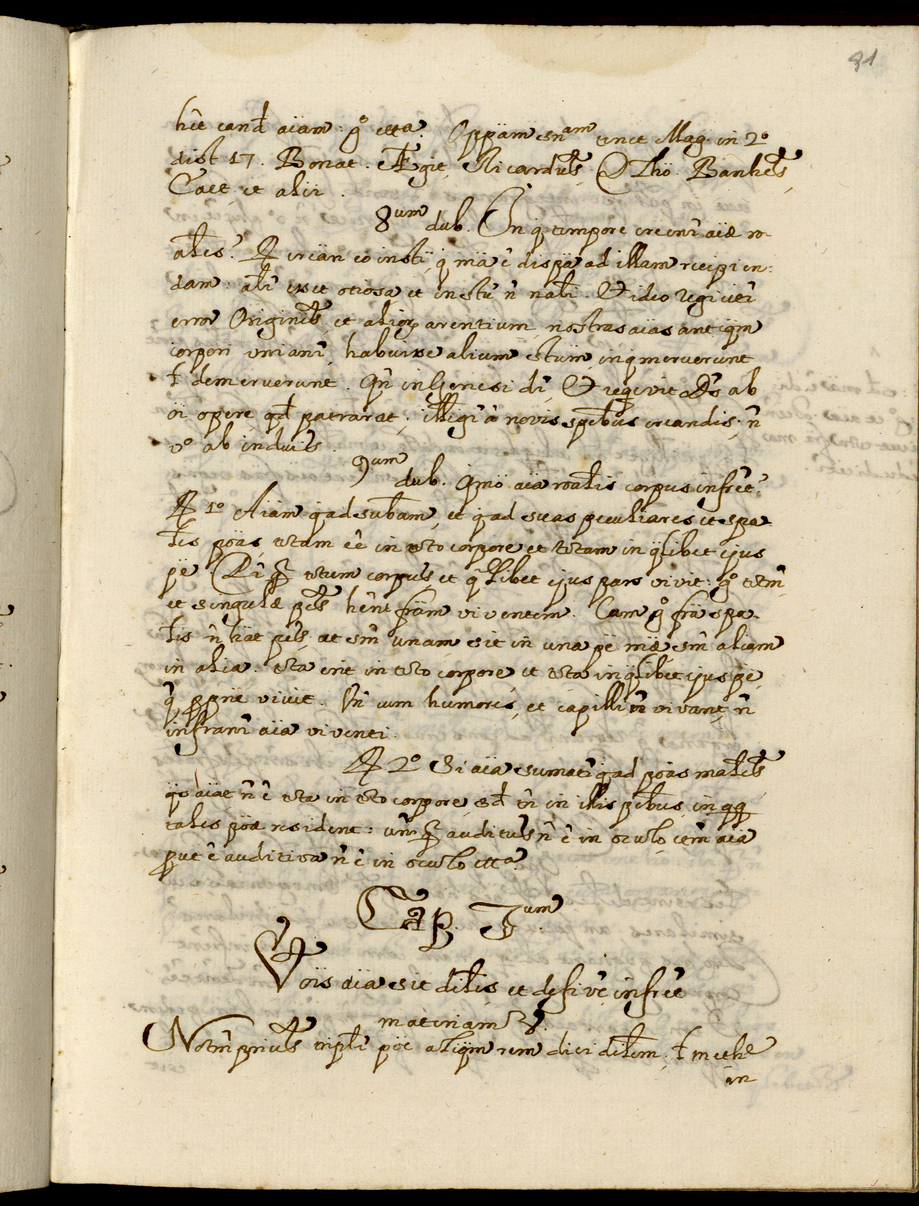 91
hēt eand aīam: gͦ ettᵃ. Oppām snᵃᵐ tnet Mag. in 2ͦ
dist 17. Bonat. Egit, Ricardus, D. Tho. Banhes,
Caet, et alii.
8ᵘᵐ dub. In q̄ tempore creent̄ aīæ ro-
ales? R creari eo insti, q̄ mā ē dispā ad illam recipien:
dam: alr̄ esset otiosa et in stū n̄ nali. Et ideo regiciet̄
error Originis, et alior arentium nostras aīas anteq̄m
corpori uniant̄, habuisse alium stūm, in q̄ meruerunt
t̄ demeruerunt. Qn̄ in Genesi dr̄, Et reqivit Ds ab
oī opere qd patrarat; illigr̄ à novis spebus creandis; n̄
vͦ ab induis.
9ᵘᵐ dub. Qmō aīa roalis corpus infret?
R 1ͦ Aīam q̄ad subam, et q̄ad suas peculiares et spa-
les poās, totam eē in toto corpore et totam in q̄libet ejus
pē. Dr̄ totum corpus et q̄libet ejus pars vivit: gͦ totm̄
et singulæ ptes hēnt frām viventem. Cum gͦ frā spa-
lis n̄ hāt ptes, at sm̄ unam sit in una pē mæ sm̄ aliam
in alia: tota erit in toto corpore et tota in q̄libet ejus pē,
q̄ pprie vivit. Vn̄ cum humores, et capilli n̄ vivant, n̄
infrant̄ aīa viventi.
R 2ͦ Si aīa sumat̄ q̄ad poās males
q̄s aīat n̄ ē tota in toto corpore, sd tn̄ in illis ptibus, in qq
tales poæ resident: un̄ auditus n̄ ē in oculo etm̄ aīa
put ē auditiva n̄ ē in oculo ettᵃ.
Cap. Iᵘᵐ
Vt̄ roīs aīa sit dilis et defive infret
materiam?
Notm̄ prius tripli pōe aliq̄m rem dici dilem, t̄ methe
in